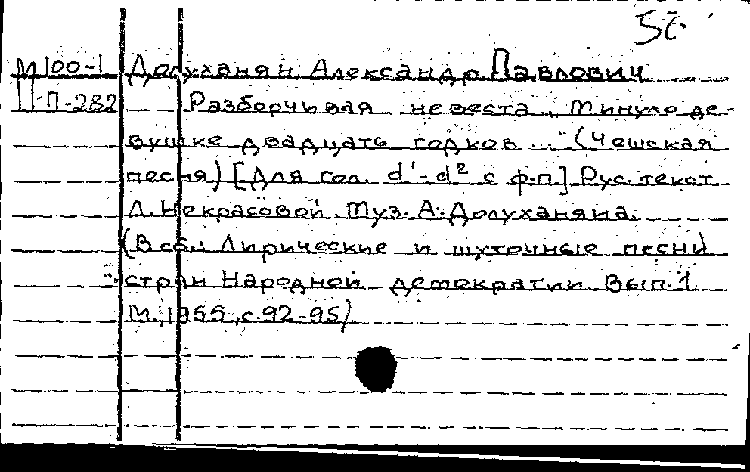 М100-1 Долуханян Александр Павлович
П-282 Разборчивая невеста. Минуло де-
вушке двадцать годков... (Чешская
песня) [Для гол. d¹-d² с ф.п.] Рус. текст
Л. Некрасовой. Муз. А. Долуханяна.
(В сб.: Лирические и шуточные песни
стран Народной демократии. Вып. 1
М., 1955, с. 92-95)